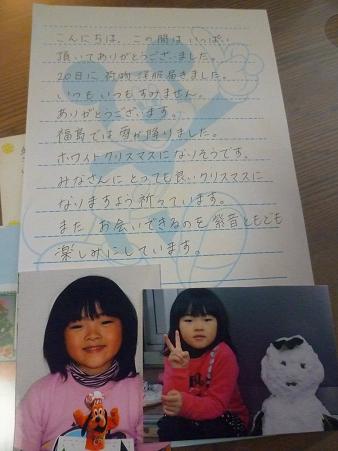 こんにちは、この間はいっぱい
頂いてありがとうございました。
20日に荷物洋服届きました。
いつもいつもすみません。
ありがとうございます。
福島では雪が降りました。
ホワイトクリスマスになりそうです。
みなさんにとっても良いクリスマスに
なりますよう祈っています。
また お会いできるのを 紫音ともども
楽しみにしています。